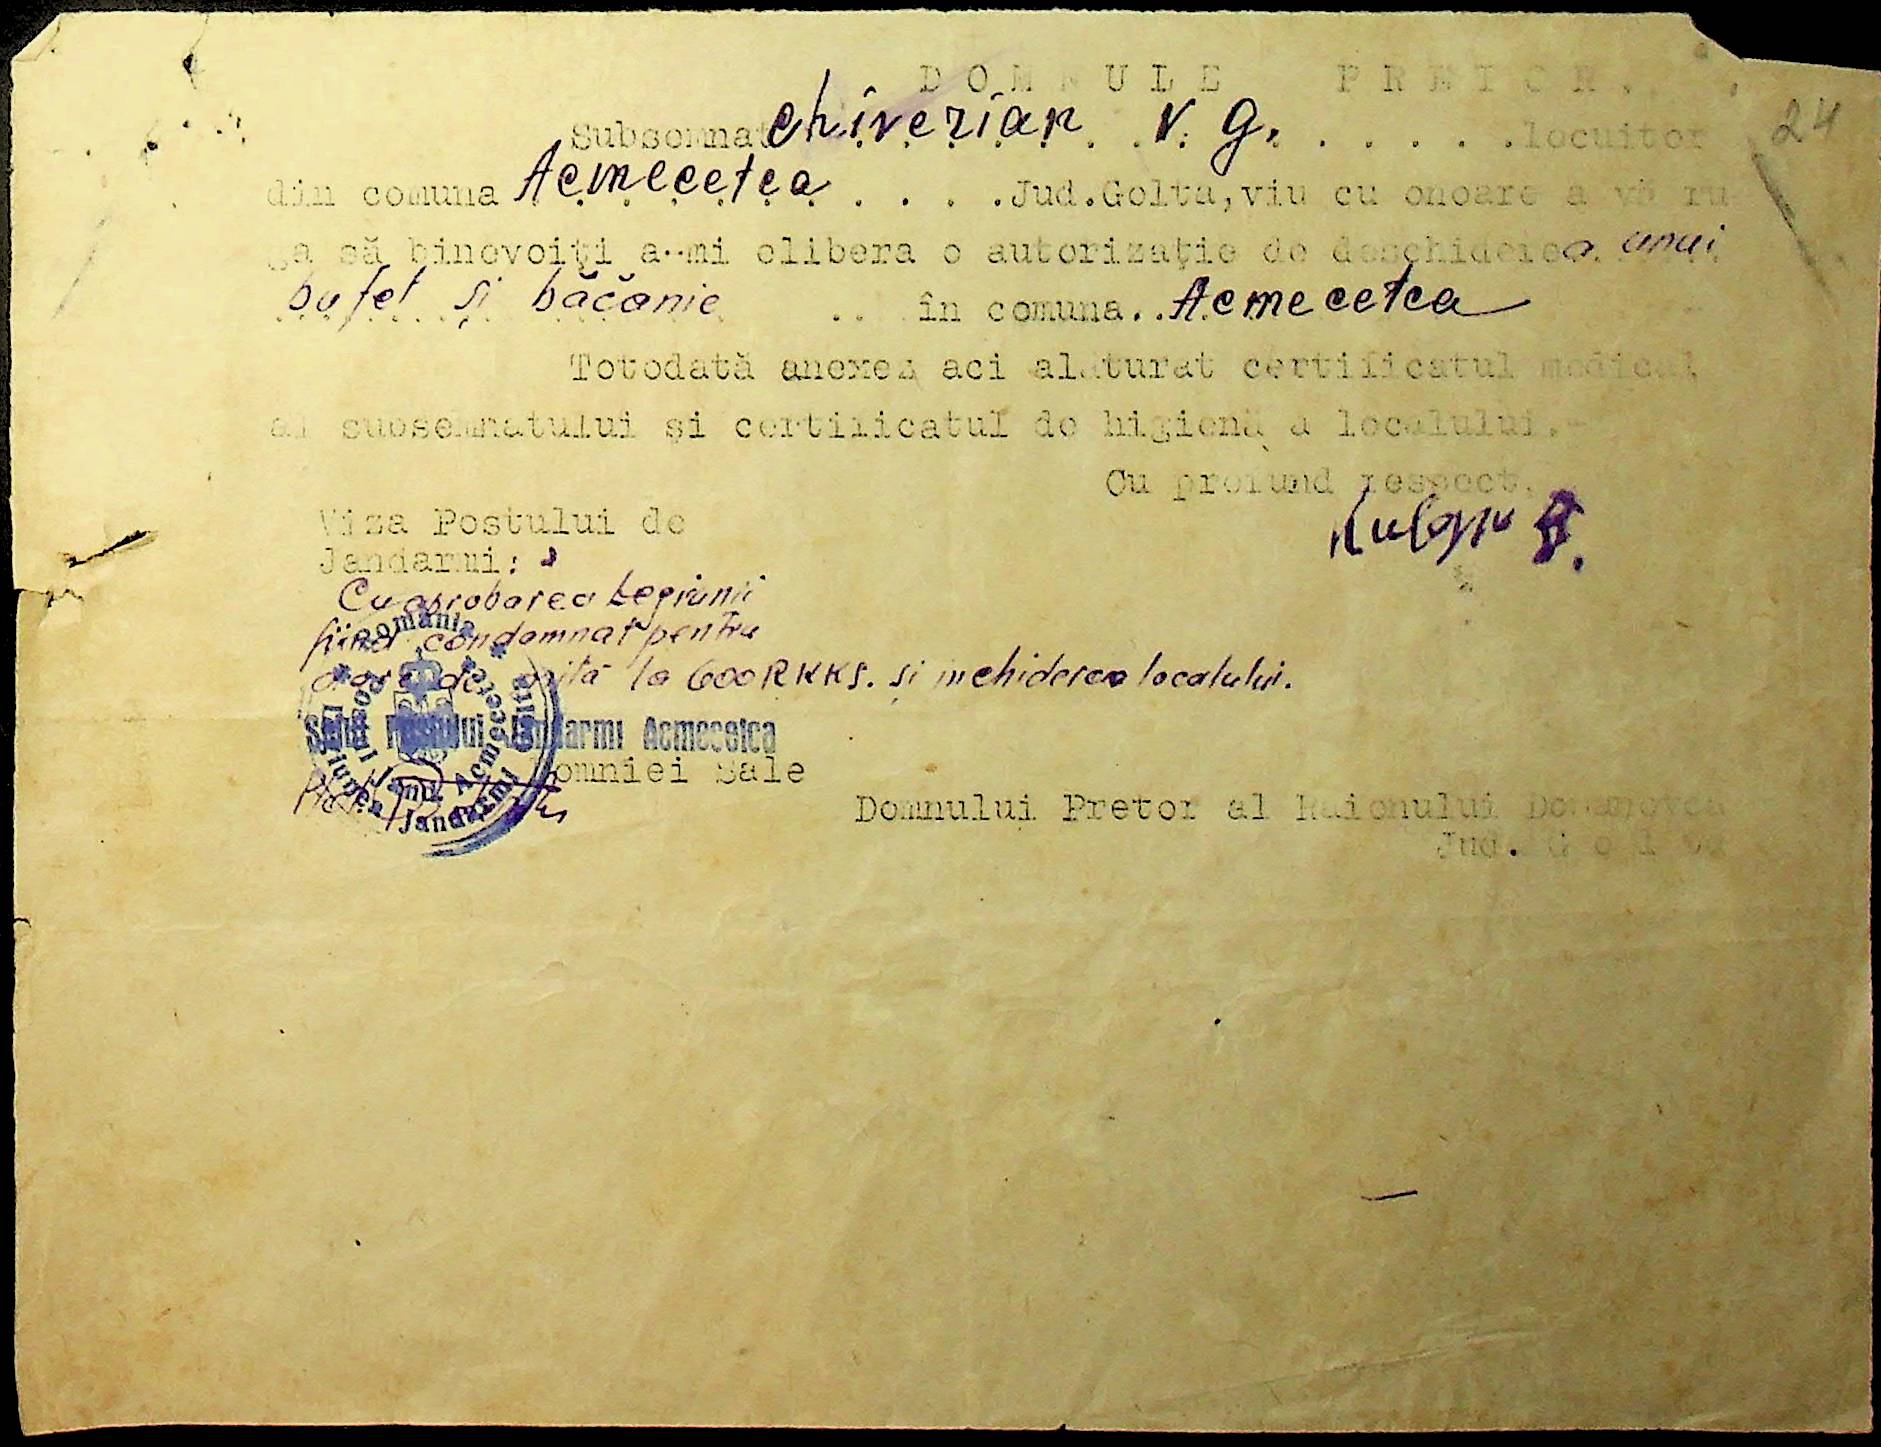 DOMNULE PRETOR.
24
Subsemnat chiverian V. G. locuitor
din comuna Acmecetca Jud.Golta, viu cu onoare a vă ru
ga să binevoiţi a-mi elibera o autorizaţie de deschiderea unui
bufet și băcănie în comuna Acmecetca
Totodată anexez aci alăturat certificatul medical
al subsemnatului şi certificatul de higienă a localului.-
Cu profund respect.
Viza Postului de
Jandarmi:
Cu aprobarea Legiunii
fiind condamnat pentru
la 600 RKKS. și inchiderea localului.
România
Postul Jand. Acmecetca
Legiunea Jandarmi Golta
Șeful Postului Jandarmi Acmecetca
Domniei Sale
Domnului Pretor al Raionului Domanovca
Jud. Golta